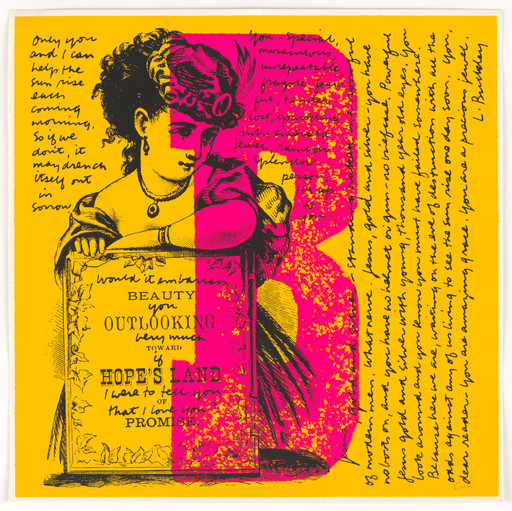 Only you
and I can
help the
sun rise
each
coming
morning.
So if we
don't, it
may drench
itself out
in
sorrow
You – special
miraculous
unrepeatable
fragile, fear
ful, tender
lost, sparkling
ruby emerald
jewel, rainbow
splendor
person
It's up
to
you
Would it embarrass
BEAUTY
you
OUTLOOKING
very much
TOWARD
if
HOPE'S LAND
I were to tell you
OF
that I love you
PROMISE.
of modern men. What nerve. Jems, gold and silver. You have
no boots on, and you have no helmet or gun – no briefcase. Powerful
jems gold and silver with young, thousand year old eyes. You
look around and you know you must have failed somewhere.
Because here we are, waiting on the eve of despair with all the
odds against any of us living to see the sun rise one day soon. You,
dear reader – You are amazing grace. You are a precious jewel.
L. Buckley